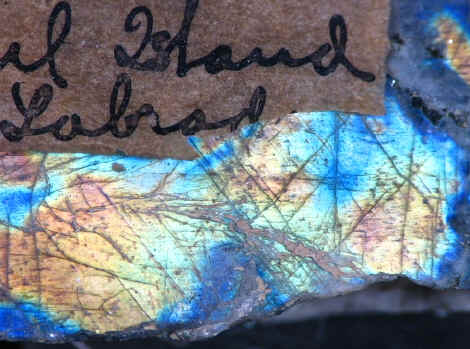 ul Island
Labrad